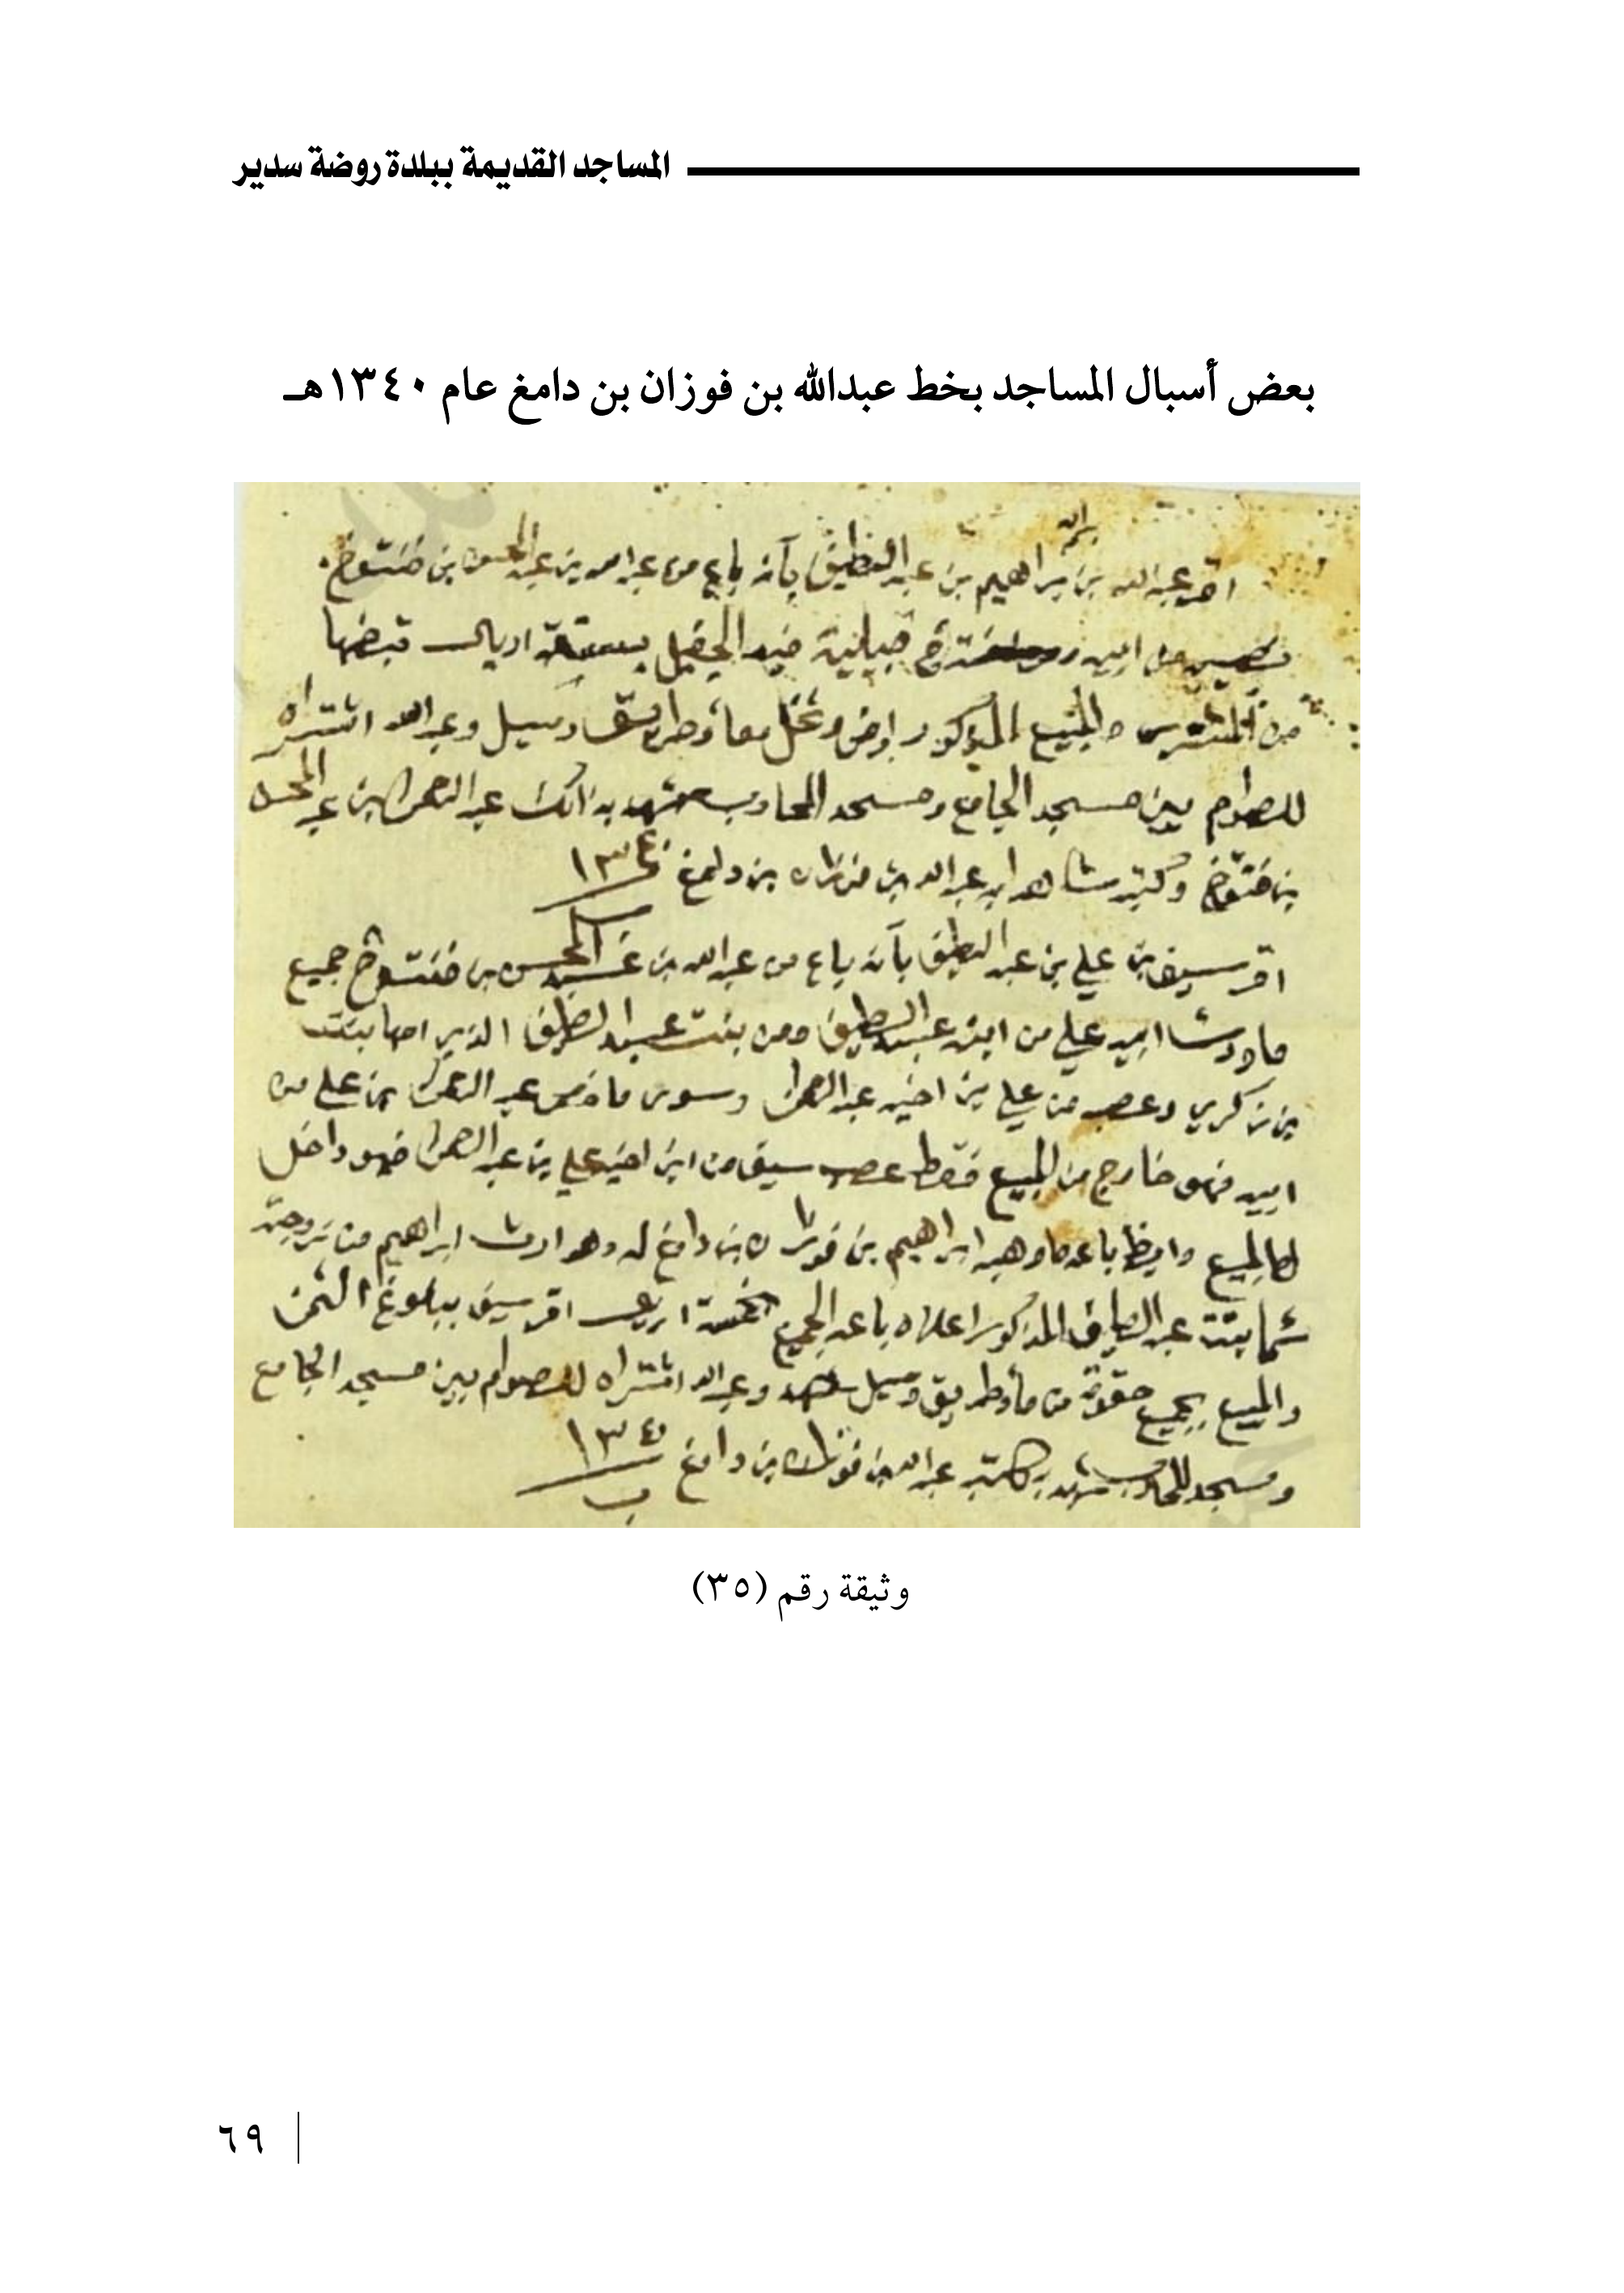 المساجد القديمة ببلدة روضة سدير
بعض أسبال المساجد بخط عبدالله بن فوزان بن دامغ عام ١٣٤٠هـ
اقر عبدالله بن براهيم بن عبد اللطيف بأنه باع من عبدالله بن عبد المحسن بن فنتوخ
من ابيه فيد الحفيل بستة اريال قبضها
من المشتري والمبيع المذكور ارض ونخل وماء وطريق ومسيل وعبدالله اشتراه
للصوام بين مسجد الجامع ومسجد المحارب شهد بذالك عبد الرحمن بن عبد المحسن
بن فنتوخ وكتبه شاهدا به عبدالله بن فوزان بن دامغ ١٣٤٠
اقر سيف بن علي بن عبد اللطيف بأنه باع من عبدالله بن عبد المحسن بن فنتوخ جميع
ما ورث ابيه علي من ابيه عبد اللطيف ومن بنت عبد اللطيف الذي امها بنت
بن زكري وعصب من علي بن اخيه عبد الرحمن وسوى ما عبد الرحمن بن علي من
ابيه فهو خارج من المبيع فقط عصب سيف من ابن اخيه علي بن عبد الرحمن فهو داخل
المبيع وايظا باعه ما وهبه ابراهيم بن فوزان بن دامغ له وهو ارث ابراهيم من زوجته
شما بنت عبد اللطيف المذكور اعلاه باعه الجميع بخمسة اريل اقر سيف ببلوغ الثمن
والمبيع بجميع حقوقه من ماء وطريق ومسيل وعبدالله اشتراه للصوام بين مسجد الجامع
ومسجد المحارب شهد به كاتبه عبدالله بن فوزان بن دامغ ١٣٤٠
وثيقة رقم (٣٥)
٦٩